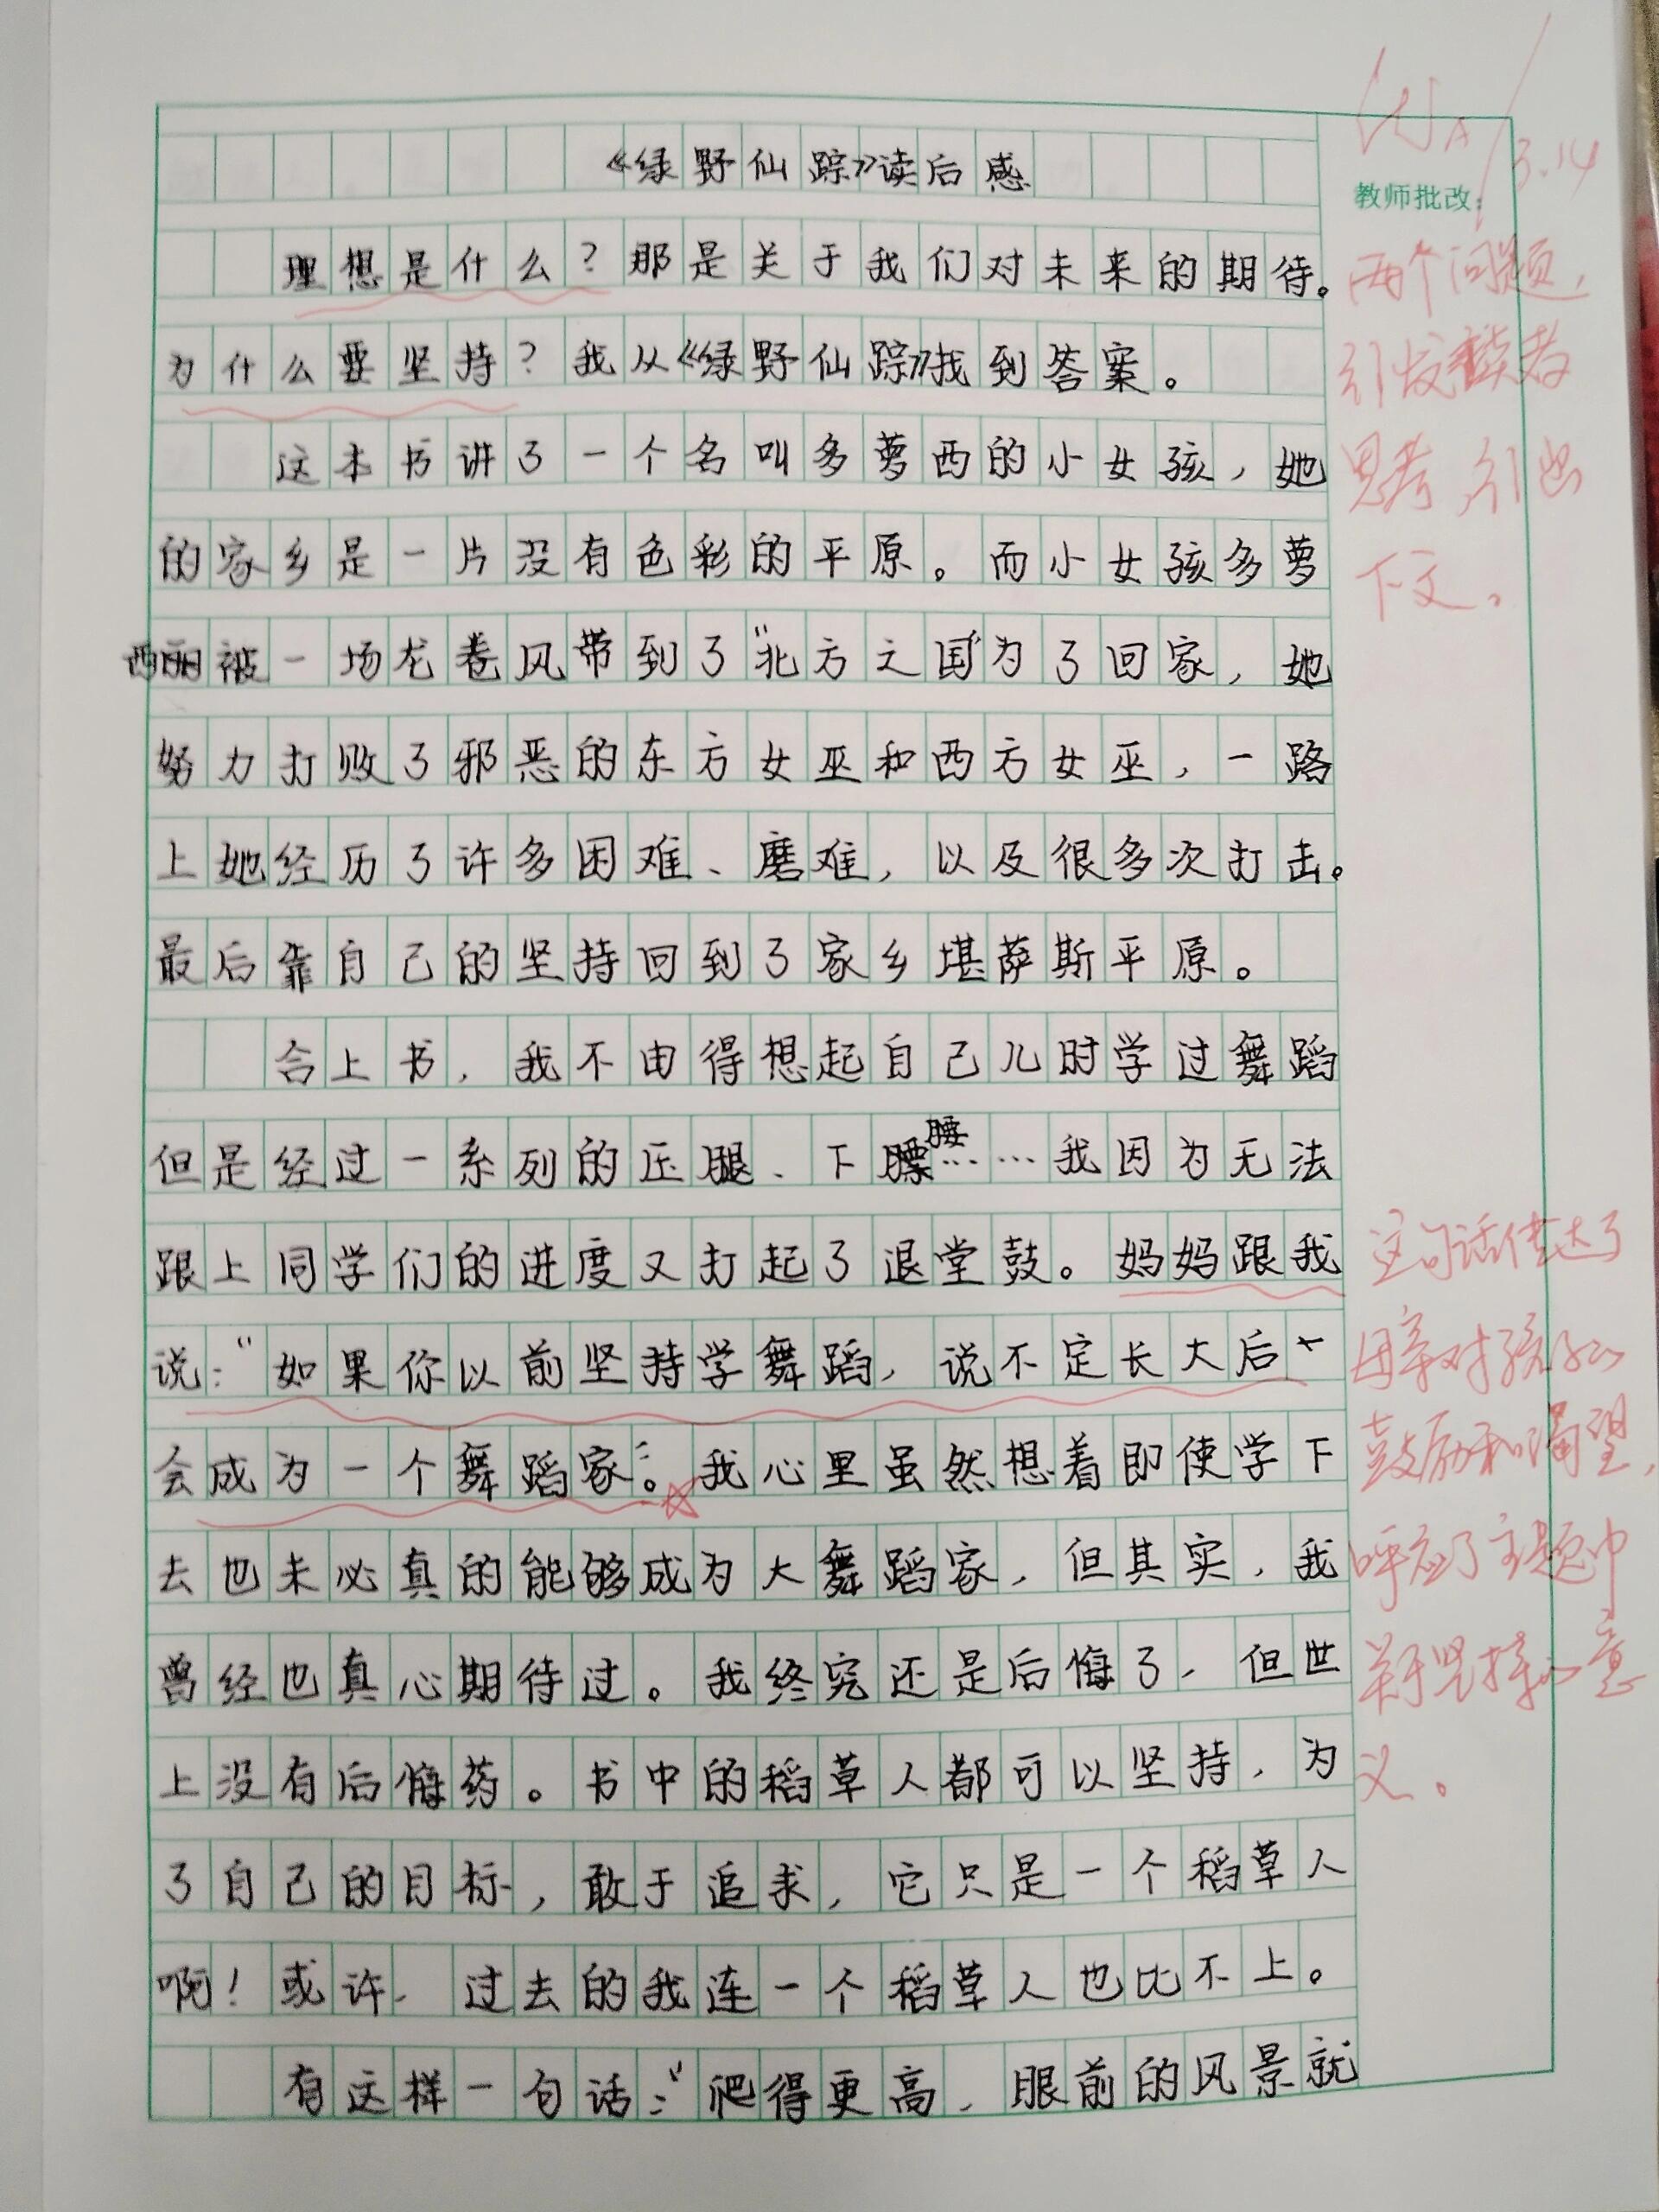 《绿野仙踪》读后感
教师批改：
理想是什么？那是关于我们对未来的期待。
为什么要坚持？我从《绿野仙踪》找到答案。
这本书讲了一个名叫多萝西的小女孩，她
的家乡是一片没有色彩的平原。而小女孩多萝
西丽被一场龙卷风带到了“北方之国”为了回家，她
努力打败了邪恶的东方女巫和西方女巫，一路
上她经历了许多困难、磨难，以及很多次打击。
最后靠自己的坚持回到了家乡堪萨斯平原。
合上书，我不由得想起自己儿时学过舞蹈
但是经过一系列的压腿、下腰……我因为无法
跟上同学们的进度又打起了退堂鼓。妈妈跟我
说：“如果你以前坚持学舞蹈，说不定长大后
会成为一个舞蹈家”。我心里虽然想着即使学下
去也未必真的能够成为大舞蹈家，但其实，我
曾经也真心期待过。我终究还是后悔了，但世
上没有后悔药。书中的稻草人都可以坚持，为
了自己的目标，敢于追求，它只是一个稻草人
啊！或许，过去的我连一个稻草人也比不上。
有这样一句话：“爬得更高，眼前的风景就
3.14
两个问题，
引发读者
思考，引出
下文。
这句话传达了
母亲对孩子的
鼓励和渴望，
呼应了主题中
关于坚持的意
义。